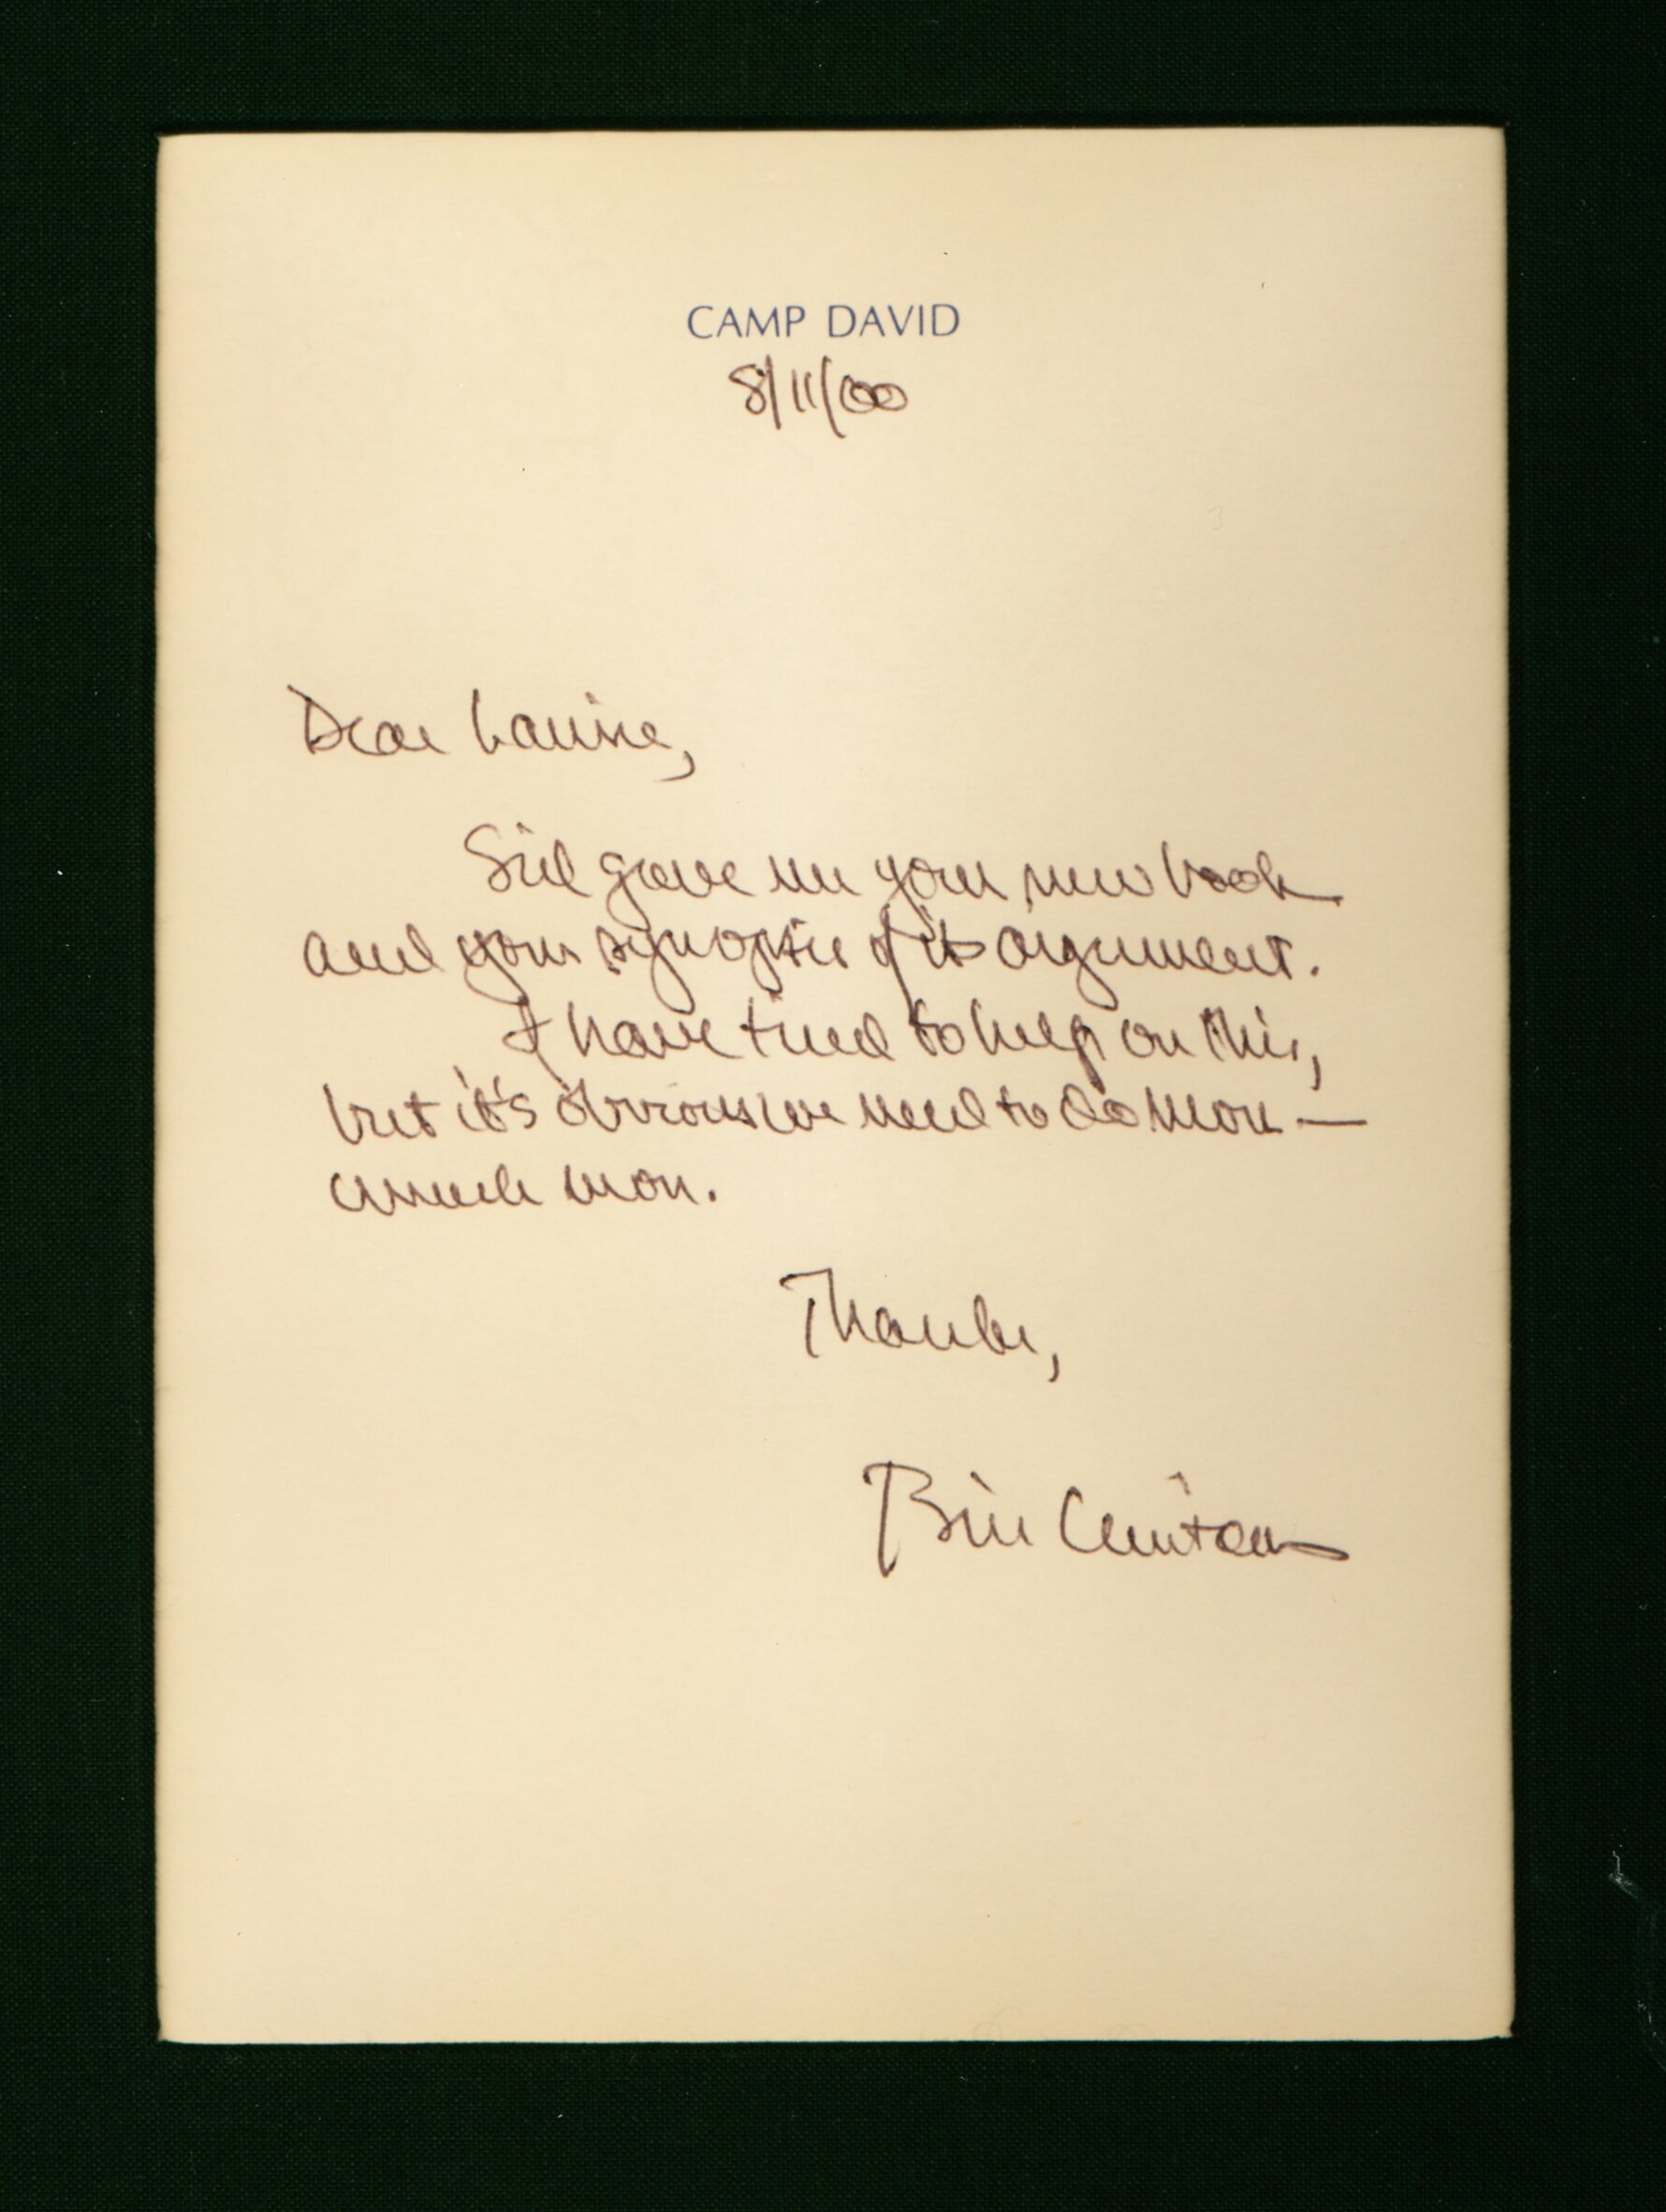 CAMP DAVID
8/11/00
Dear Laurie,
Sid gave me your new book
and your synopsis of its argument.
I have tried to help on this,
but it's obvious we need to do more —
much more.
Thanks,
Bill Clinton